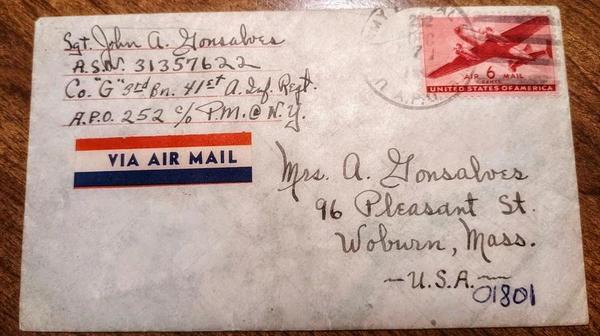 Sgt. John A. Gonsalves
A.S.N. 31357622
Co. "G" 3rd Bn. 41st A. Inf. Regt.
A.P.O. 252 c/o P.M. @ N.Y.
VIA AIR MAIL
252
A.P.O.
AIR 6 MAIL
CENTS
UNITED STATES OF AMERICA
Mrs. A. Gonsalves
96 Pleasant St.
Woburn, Mass.
~ U.S.A. ~
01801